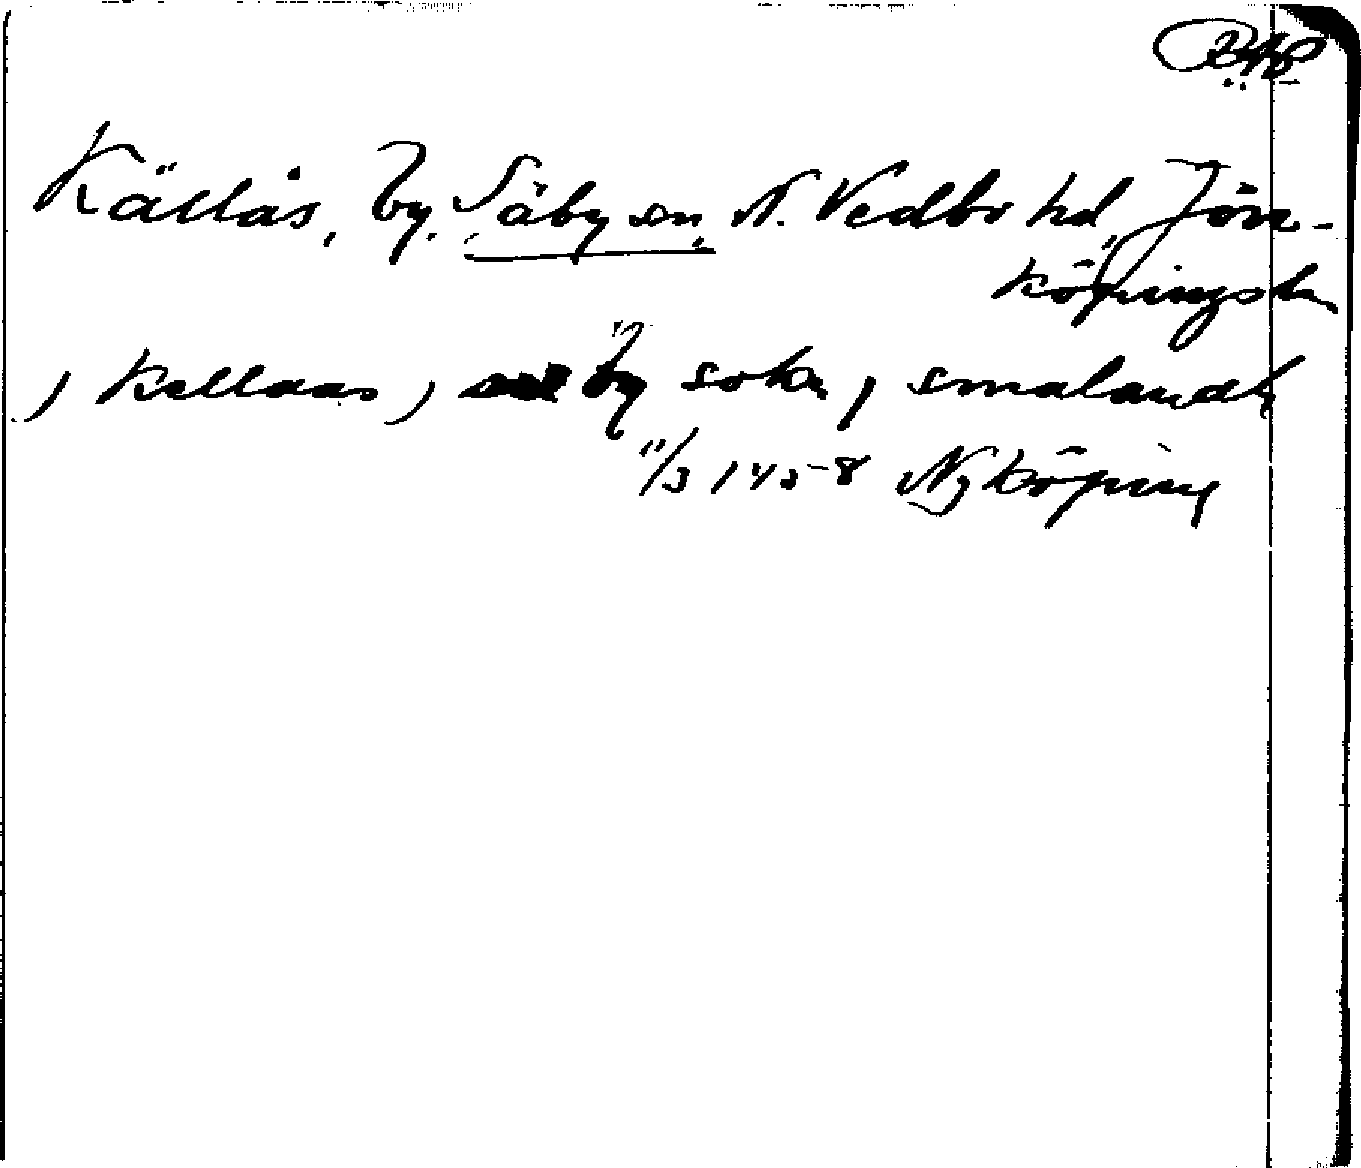 Källås, by. Säby sn, N. Vedbo hd, Jön-
köpingsln
) kellaas ) by sokn ) smalandh
11/3 1458 Nyköping